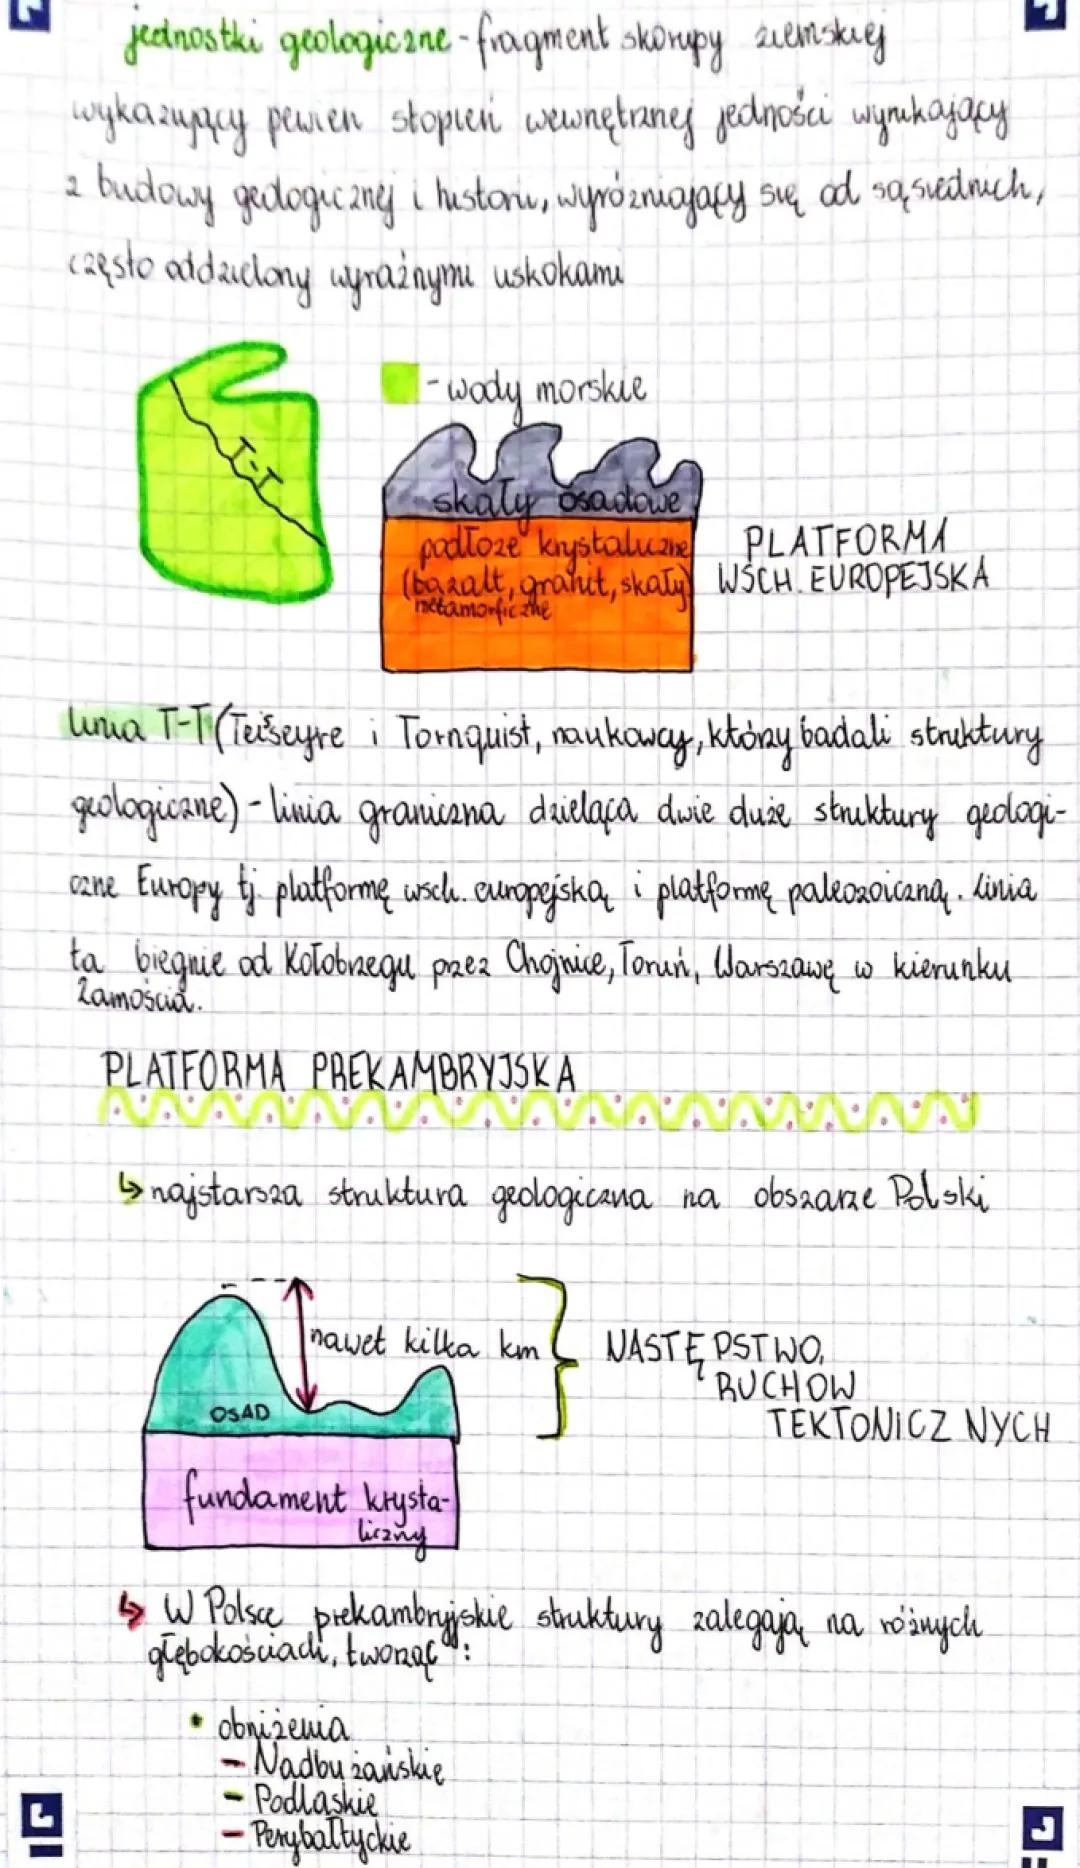 jednostki geologiczne - fragment skorupy ziemskiej
wykazujący pewien stopień wewnętrznej jedności wynikający
z budowy geologicznej i historii, wyróżniający się od sąsiednich,
często oddzielony wyraźnymi uskokami
- wody morskie
T-T
skały osadowe
podłoże krystaliczne
(bazalt, granit, skały
metamorficzne
PLATFORMA
WSCH. EUROPEJSKA
linia T-T (Teisseyre i Tornquist, naukowcy, którzy badali struktury
geologiczne) - linia graniczna dzieląca dwie duże struktury geologi-
czne Europy tj. platformę wsch. europejską i platformę paleozoiczną. Linia
ta biegnie od Kołobrzegu przez Chojnice, Toruń, Warszawę w kierunku
Zamościa.
PLATFORMA PREKAMBRYJSKA
↳ najstarsza struktura geologiczna na obszarze Polski
nawet kilka km
OSAD
fundament krysta-
liczny
NASTĘPSTWO
RUCHÓW
TEKTONICZNYCH
↳ W Polsce prekambryjskie struktury zalegają na różnych
głębokościach, tworząc:
• obniżenia
- Nadbużańskie
- Podlaskie
- Perybałtyckie